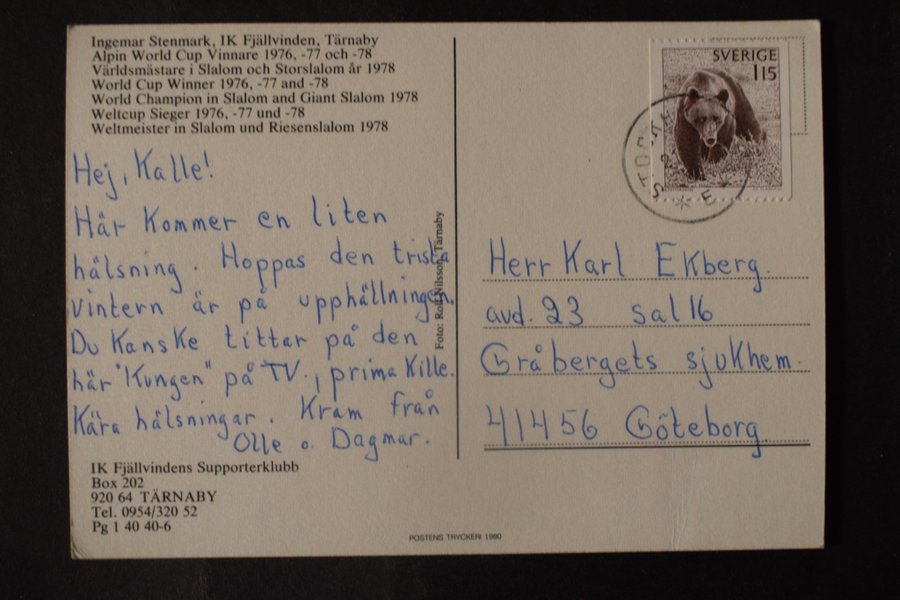 Ingemar Stenmark, IK Fjällvinden, Tärnaby
Alpin World Cup Vinnare 1976, -77 och -78
Världsmästare i Slalom och Storslalom år 1978
World Cup Winner 1976, -77 and -78
World Champion in Slalom and Giant Slalom 1978
Weltcup Sieger 1976, -77 und -78
Weltmeister in Slalom und Riesenslalom 1978
Hej, Kalle!
Här kommer en liten
hälsning. Hoppas den trista
vintern är på upphällningen.
Du kanske tittar på den
här "Kungen" på TV., prima kille.
Kära hälsningar. Kram från
Olle o. Dagmar.
IK Fjällvindens Supporterklubb
Box 202
920 64 TÄRNABY
Tel. 0954/320 52
Pg 1 40 40-6
Foto: Rolf Nilsson, Tärnaby
POSTENS TRYCKERI 1980
SVERIGE
115
Herr Karl Ekberg.
avd. 23 sal 16
Gråbergets sjukhem.
41456 Göteborg